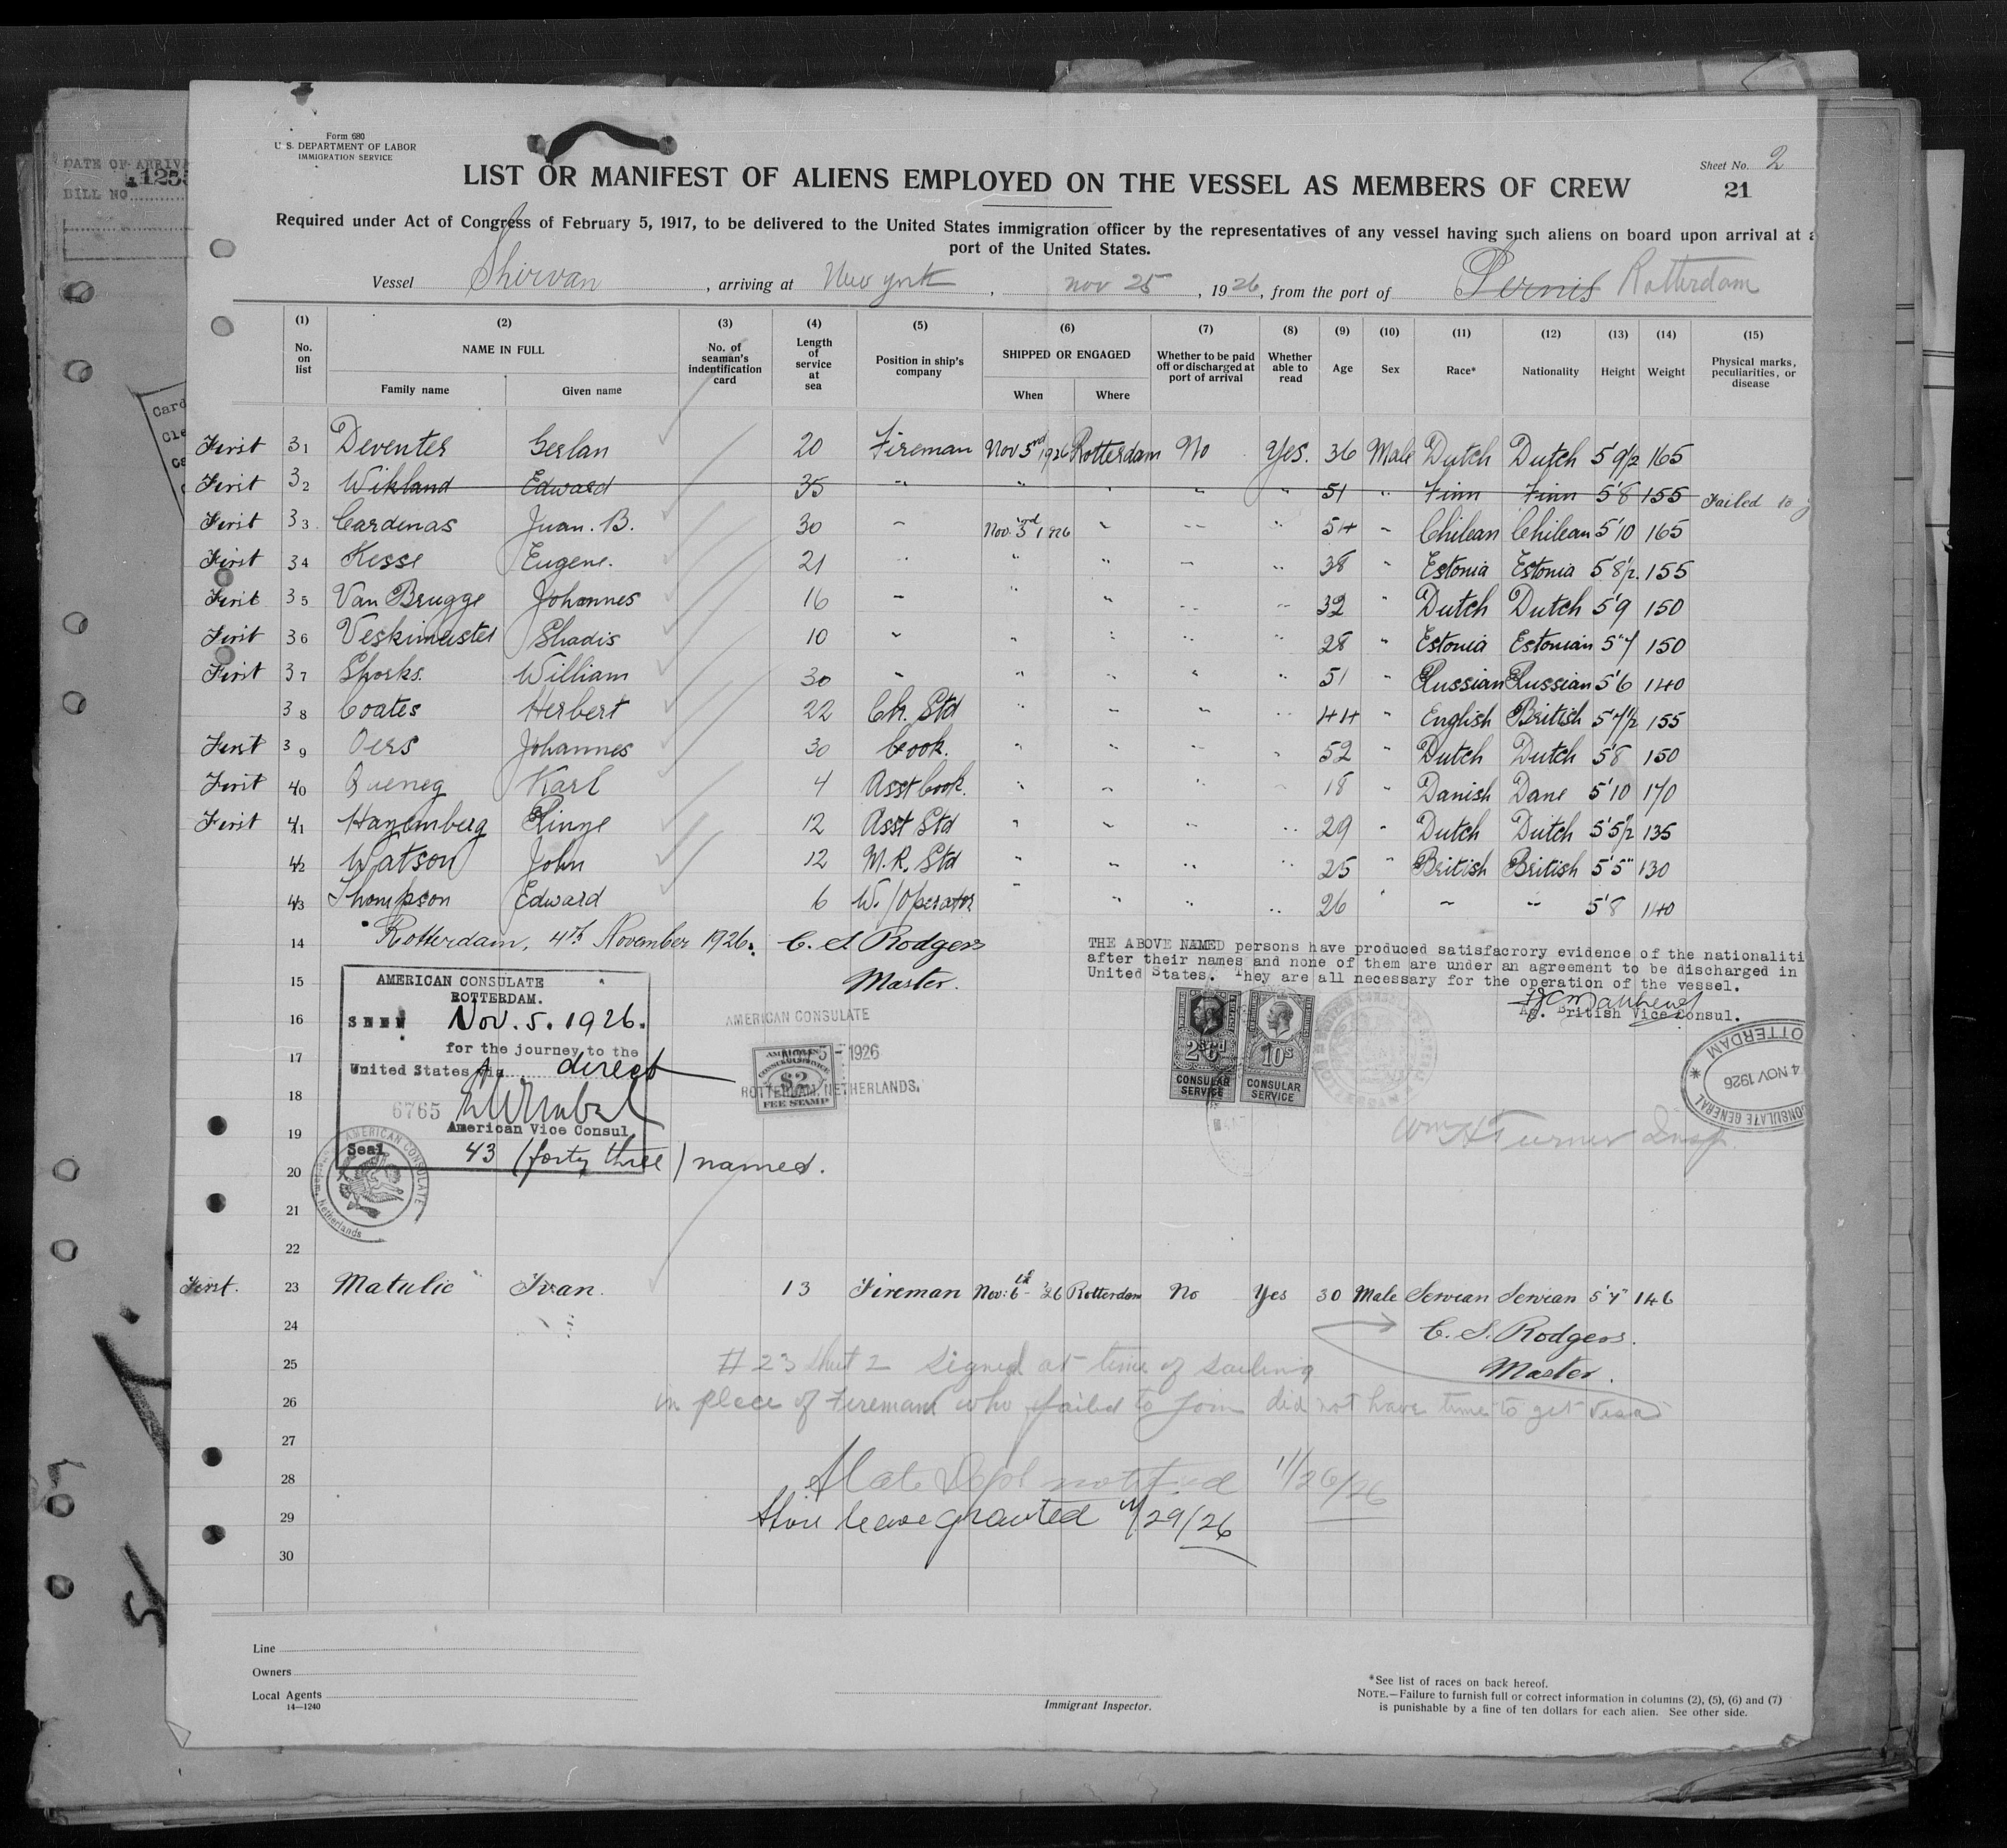 DATE OF ARRIVA
1255
BILL NO
Card
Cle
Form 680
U. S. DEPARTMENT OF LABOR
IMMIGRATION SERVICE
Sheet No. 2
21
LIST OR MANIFEST OF ALIENS EMPLOYED ON THE VESSEL AS MEMBERS OF CREW
Required under Act of Congress of February 5, 1917, to be delivered to the United States immigration officer by the representatives of any vessel having such aliens on board upon arrival at a
port of the United States.
Vessel Shirvan, arriving at New york, nov 25, 1926, from the port of Pernis Rotterdam
(1) (2) (3) (4) (5) (6) (7) (8) (9) (10) (11) (12) (13) (14) (15)
No. on list NAME IN FULL Family name Given name No. of seaman's indentification card Length of service at sea Position in ship's company SHIPPED OR ENGAGED When Where Whether to be paid off or discharged at port of arrival Whether able to read Age Sex Race* Nationality Height Weight Physical marks, peculiarities, or disease
First 31 Deventer Gerlan 20 Fireman Nov 5rd 1926 Rotterdam No Yes. 36 Male Dutch Dutch 5'9½ 165
First 32 Wikland Edward 35 " " " " " 51 " Finn Finn 5'8 155 Failed to j
First 33 Cardenas Juan. B. 30 " Nov. 3rd 1926 " " " 54 " Chilean Chilean 5'10 165
First 34 Kesse Eugene. 21 " " " " " 38 " Estonia Estonia 5'8½ 155
First 35 Van Brugge Johannes 16 " " " " " 32 " Dutch Dutch 5'9 150
First 36 Veskimeister 10 " " " " " 28 " Estonia Estonian 5"7 150
First 37 Shorks. William 30 " " " " " 51 " Russian Russian 5'6 140
38 Coates Herbert 22 Ch. Std " " " " 44 " English British 5'7½ 155
First 39 Oers Johannes 30 Cook. " " " " 52 " Dutch Dutch 5'8 150
First 40 Karl 4 Asst Cook. " " " " 18 " Danish Dane 5'10 170
First 41 Hazemberg Rinze 12 Asst Std " " " " 29 " Dutch Dutch 5'5½ 135
42 Watson John 12 M. R. Std " " " " 25 " British British 5'5" 130
43 Thompson Edward 6 W./Operator " " " " 26 " " " 5'8 140
14 Rotterdam, 4th November 1926. C. S Rodgers
15 Master.
THE ABOVE NAMED persons have produced satisfacrory evidence of the nationaliti
after their names and none of them are under an agreement to be discharged in
United States. They are all necessary for the operation of the vessel.
Matthews
British Vice Consul.
AMERICAN CONSULATE
ROTTERDAM.
16 SEEN Nov. 5. 1926.
for the journey to the
17 United States via direct
18 6765
American Vice Consul
19 Seal 43 (forty three) named.
20
AMERICAN CONSULATE
5 - 1926
ROTTERDAM, NETHERLANDS.
$2
FEE STAMP
2s 6d
CONSULAR SERVICE
10s
CONSULAR SERVICE
ROTTERDAM
4 NOV 1926
CONSULATE GENERAL
Wm H Turner Insp.
AMERICAN CONSULATE
Netherlands
21
22
First. 23 Matulic Ivan. 13 Fireman Nov: 6th '26 Rotterdam No Yes 30 Male Servian Servian 5'7" 146
24 C. S. Rodgers.
25 Master.
# 23 sheet 2 signed at time of sailing
26 in place of Fireman who failed to join did not have time to get visa
27
28 State Dept notified 11/26/26
29 Shore leave granted 11/29/26
30
Line
Owners
Local Agents
14—1240
Immigrant Inspector.
*See list of races on back hereof.
NOTE.—Failure to furnish full or correct information in columns (2), (5), (6) and (7)
is punishable by a fine of ten dollars for each alien. See other side.